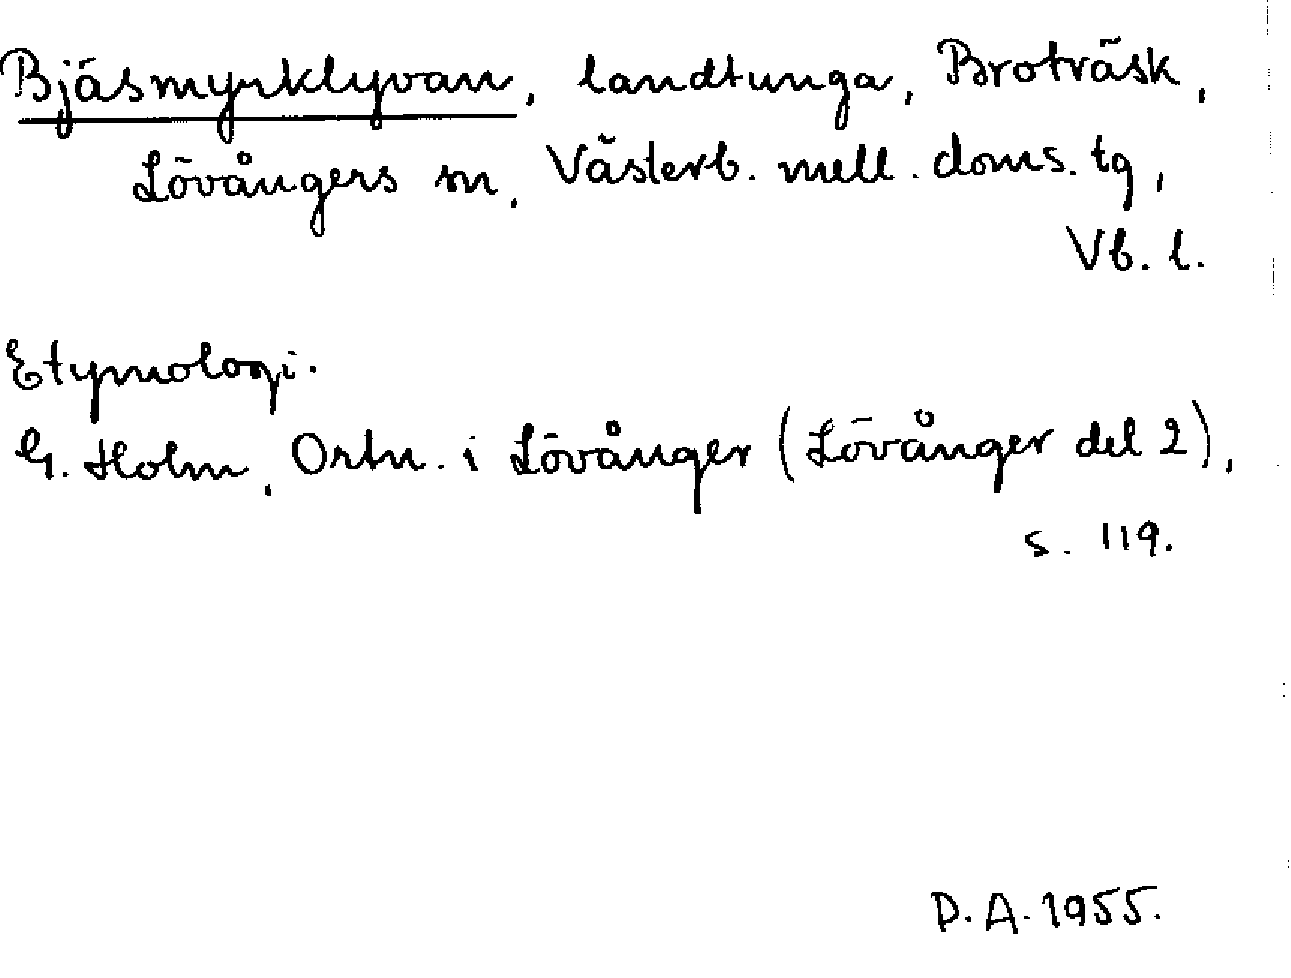 Bjäsmyrklyvan, landtunga, Broträsk,
Lövångers sn, Västerb. mell. doms. tg,
Vb. l.
Etymologi.
G. Holm, Ortn. i Lövånger (Lövånger del 2),
s. 119.
D. A. 1955.